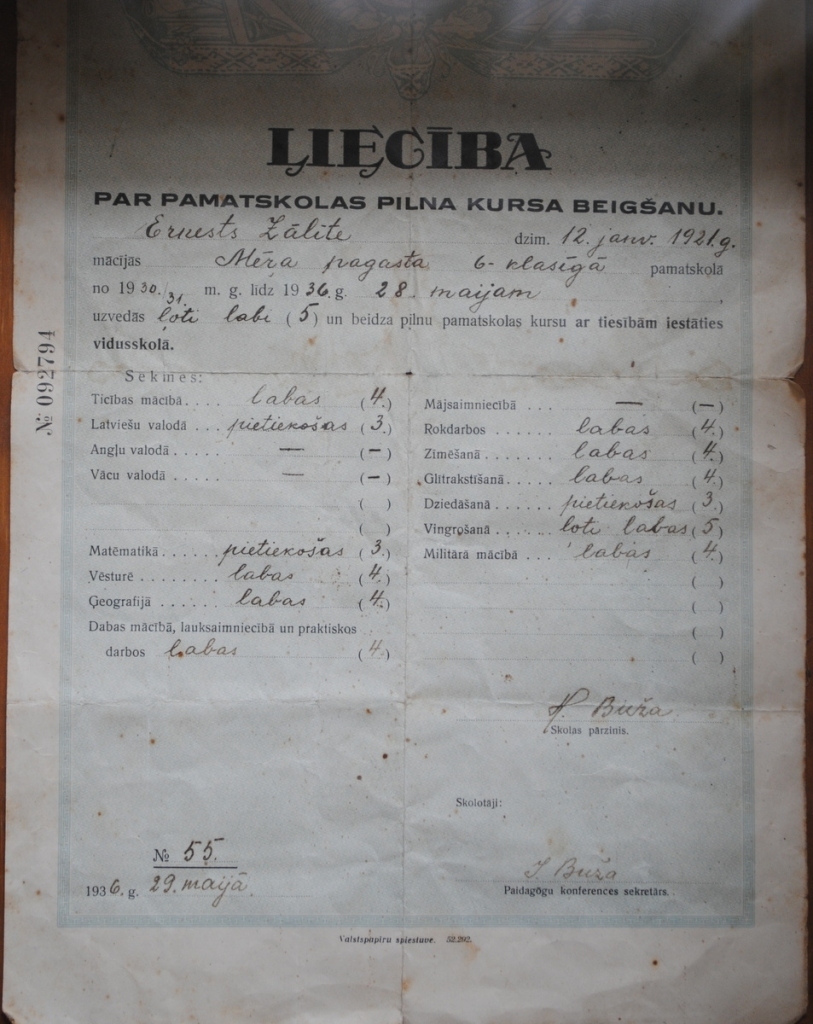 LIECĪBA
PAR PAMATSKOLAS PILNA KURSA BEIGŠANU.
Ernests Zālīte dzim. 12. janv. 1921.g.
mācījas Mēra pagasta 6-klasīgā pamatskolā
no 1930./31. m. g. līdz 1936.g. 28. maijam,
uzvedās ļoti labi (5) un beidza pilnu pamatskolas kursu ar tiesībām iestāties
vidusskolā.
№ 092794
Sekmes:
Ticības mācībā.... labas (4.)
Latviešu valodā ... pietiekošas (3.)
Angļu valodā ...... — (—)
Vācu valodā ...... — (—)
( )
( )
Matēmatikā...... pietiekošas (3.)
Vēsturē ........ labas (4.)
Ģeografijā ...... labas (4.)
Dabas mācībā, lauksaimniecībā un praktiskos
darbos labas (4.)
Mājsaimniecībā ... — (—)
Rokdarbos ...... labas (4.)
Zīmēšanā ...... labas (4.)
Glītrakstīšanā.... labas (4.)
Dziedāšanā ..... pietiekošas (3.)
Vingrošanā ....... ļoti labas (5)
Militārā mācībā .... labas (4.)
( )
( )
( )
( )
Buža
Skolas pārzinis.
Skolotāji:
№ 55.
1936. g. 29. maijā.
J. Buža
Paidagōgu konferences sekretārs.
Valstspapīru spiestuve. 52.292.